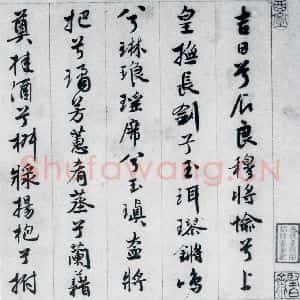 吉日兮辰良穆將愉兮上
皇撫長劍兮玉珥璆鏘鳴
兮琳琅瑶席兮玉瑱盍將
把兮璚芳蕙肴蒸兮蘭藉
奠桂酒兮椒漿揚枹兮拊
Shufawang.CN